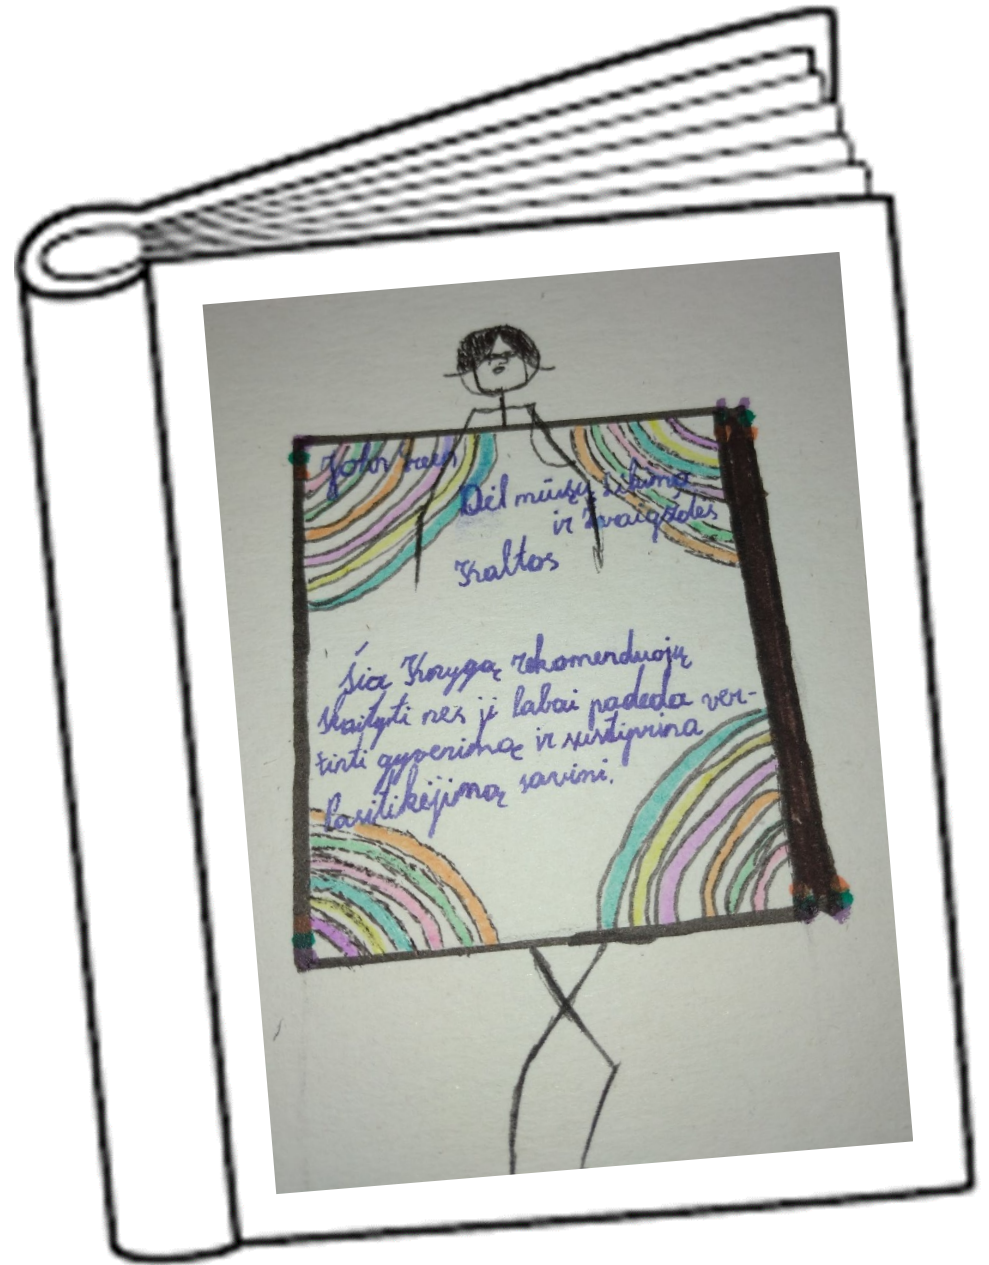 John Green
Dėl mūsų likimo
ir žvaigždės
Kaltos
Šią Knygą rekomenduoju
skaityti nes ji labai padeda ver-
tinti gyvenimą ir sustiprina
Pasitikėjimą savimi.